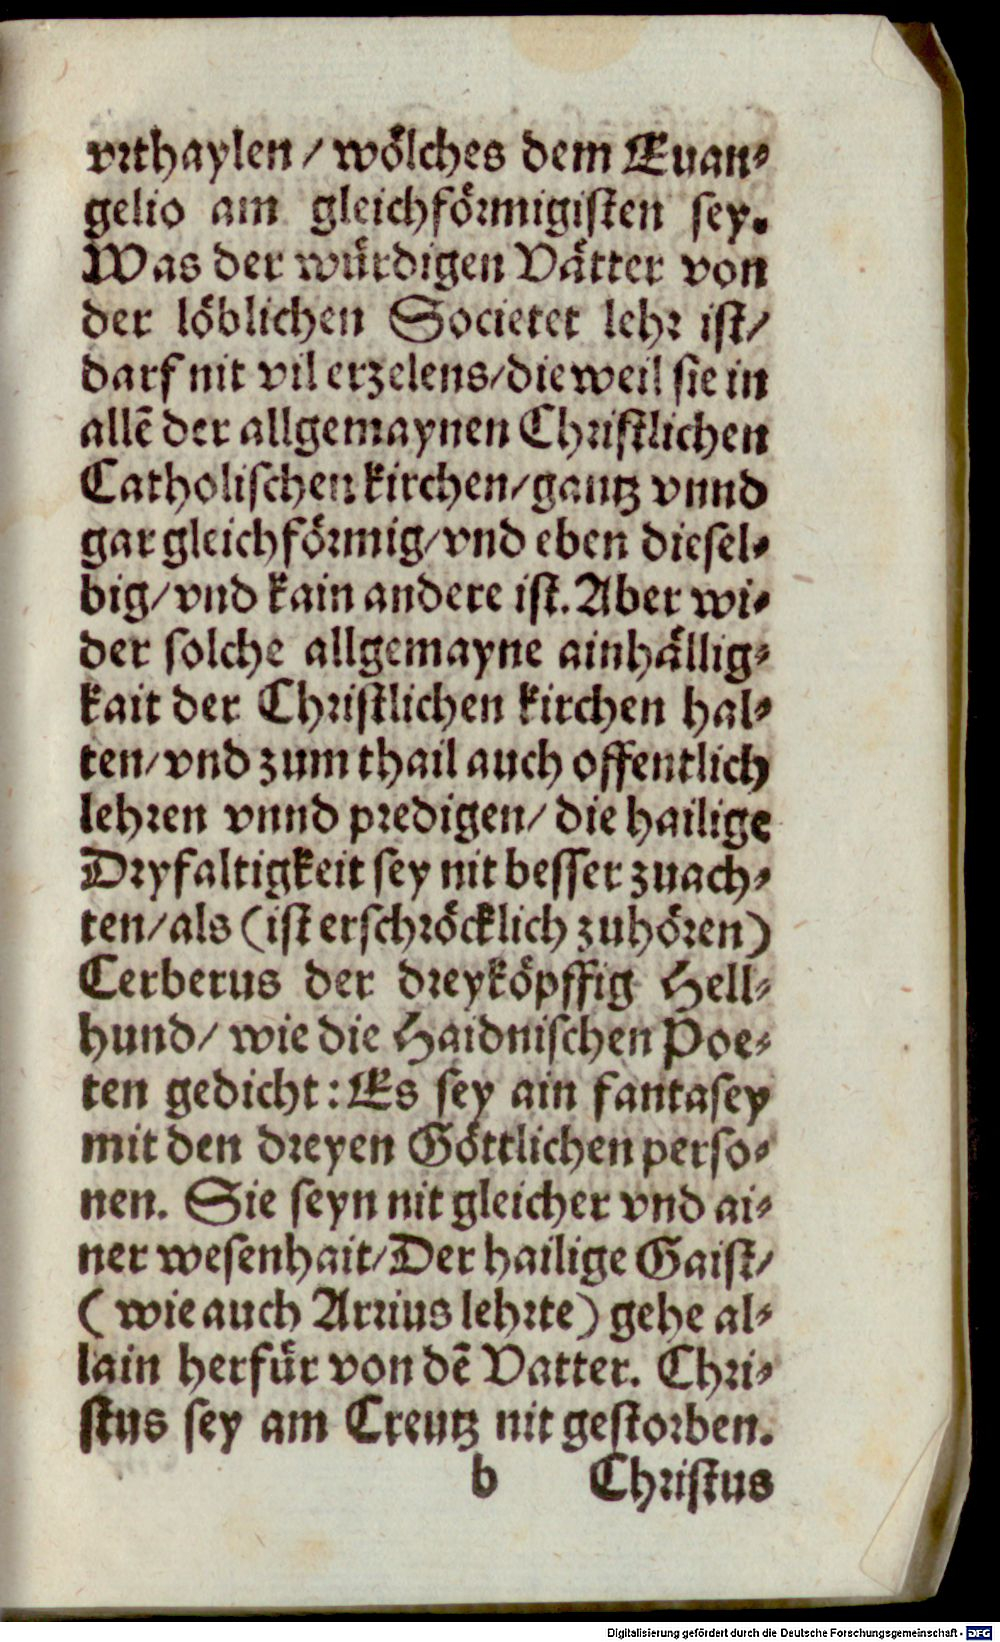 vrthaylen / wölches dem Euan⸗
gelio am gleichförmigisten sey.
Was der würdigen Vätter von
der löblichen Societet lehr ist/
darf nit vil erzelens/dieweil sie in
allē der allgemaynen Christlichen
Catholischen kirchen/gantz vnnd
gar gleichförmig/vnd eben diesel⸗
big/vnd kain andere ist. Aber wi⸗
der solche allgemayne ainhällig⸗
kait der Christlichen kirchen hal⸗
ten/vnd zum thail auch offentlich
lehren vnnd predigen/ die hailige
Dryfaltigkeit sey nit besser zuach⸗
ten/als (ist erschröcklich zuhören)
Cerberus der dreyköpffig Hell⸗
hund/ wie die Haidnischen Poe⸗
ten gedicht: Es sey ain fantasey
mit den dreyen Göttlichen perso⸗
nen. Sie seyn nit gleicher vnd ai⸗
ner wesenhait/Der hailige Gaist/
( wie auch Arrius lehrte) gehe al⸗
lain herfür von dē Vatter. Chri⸗
stus sey am Creutz nit gestorben.
b Christus
Digitalisierung gefördert durch die Deutsche Forschungsgemeinschaft - DFG